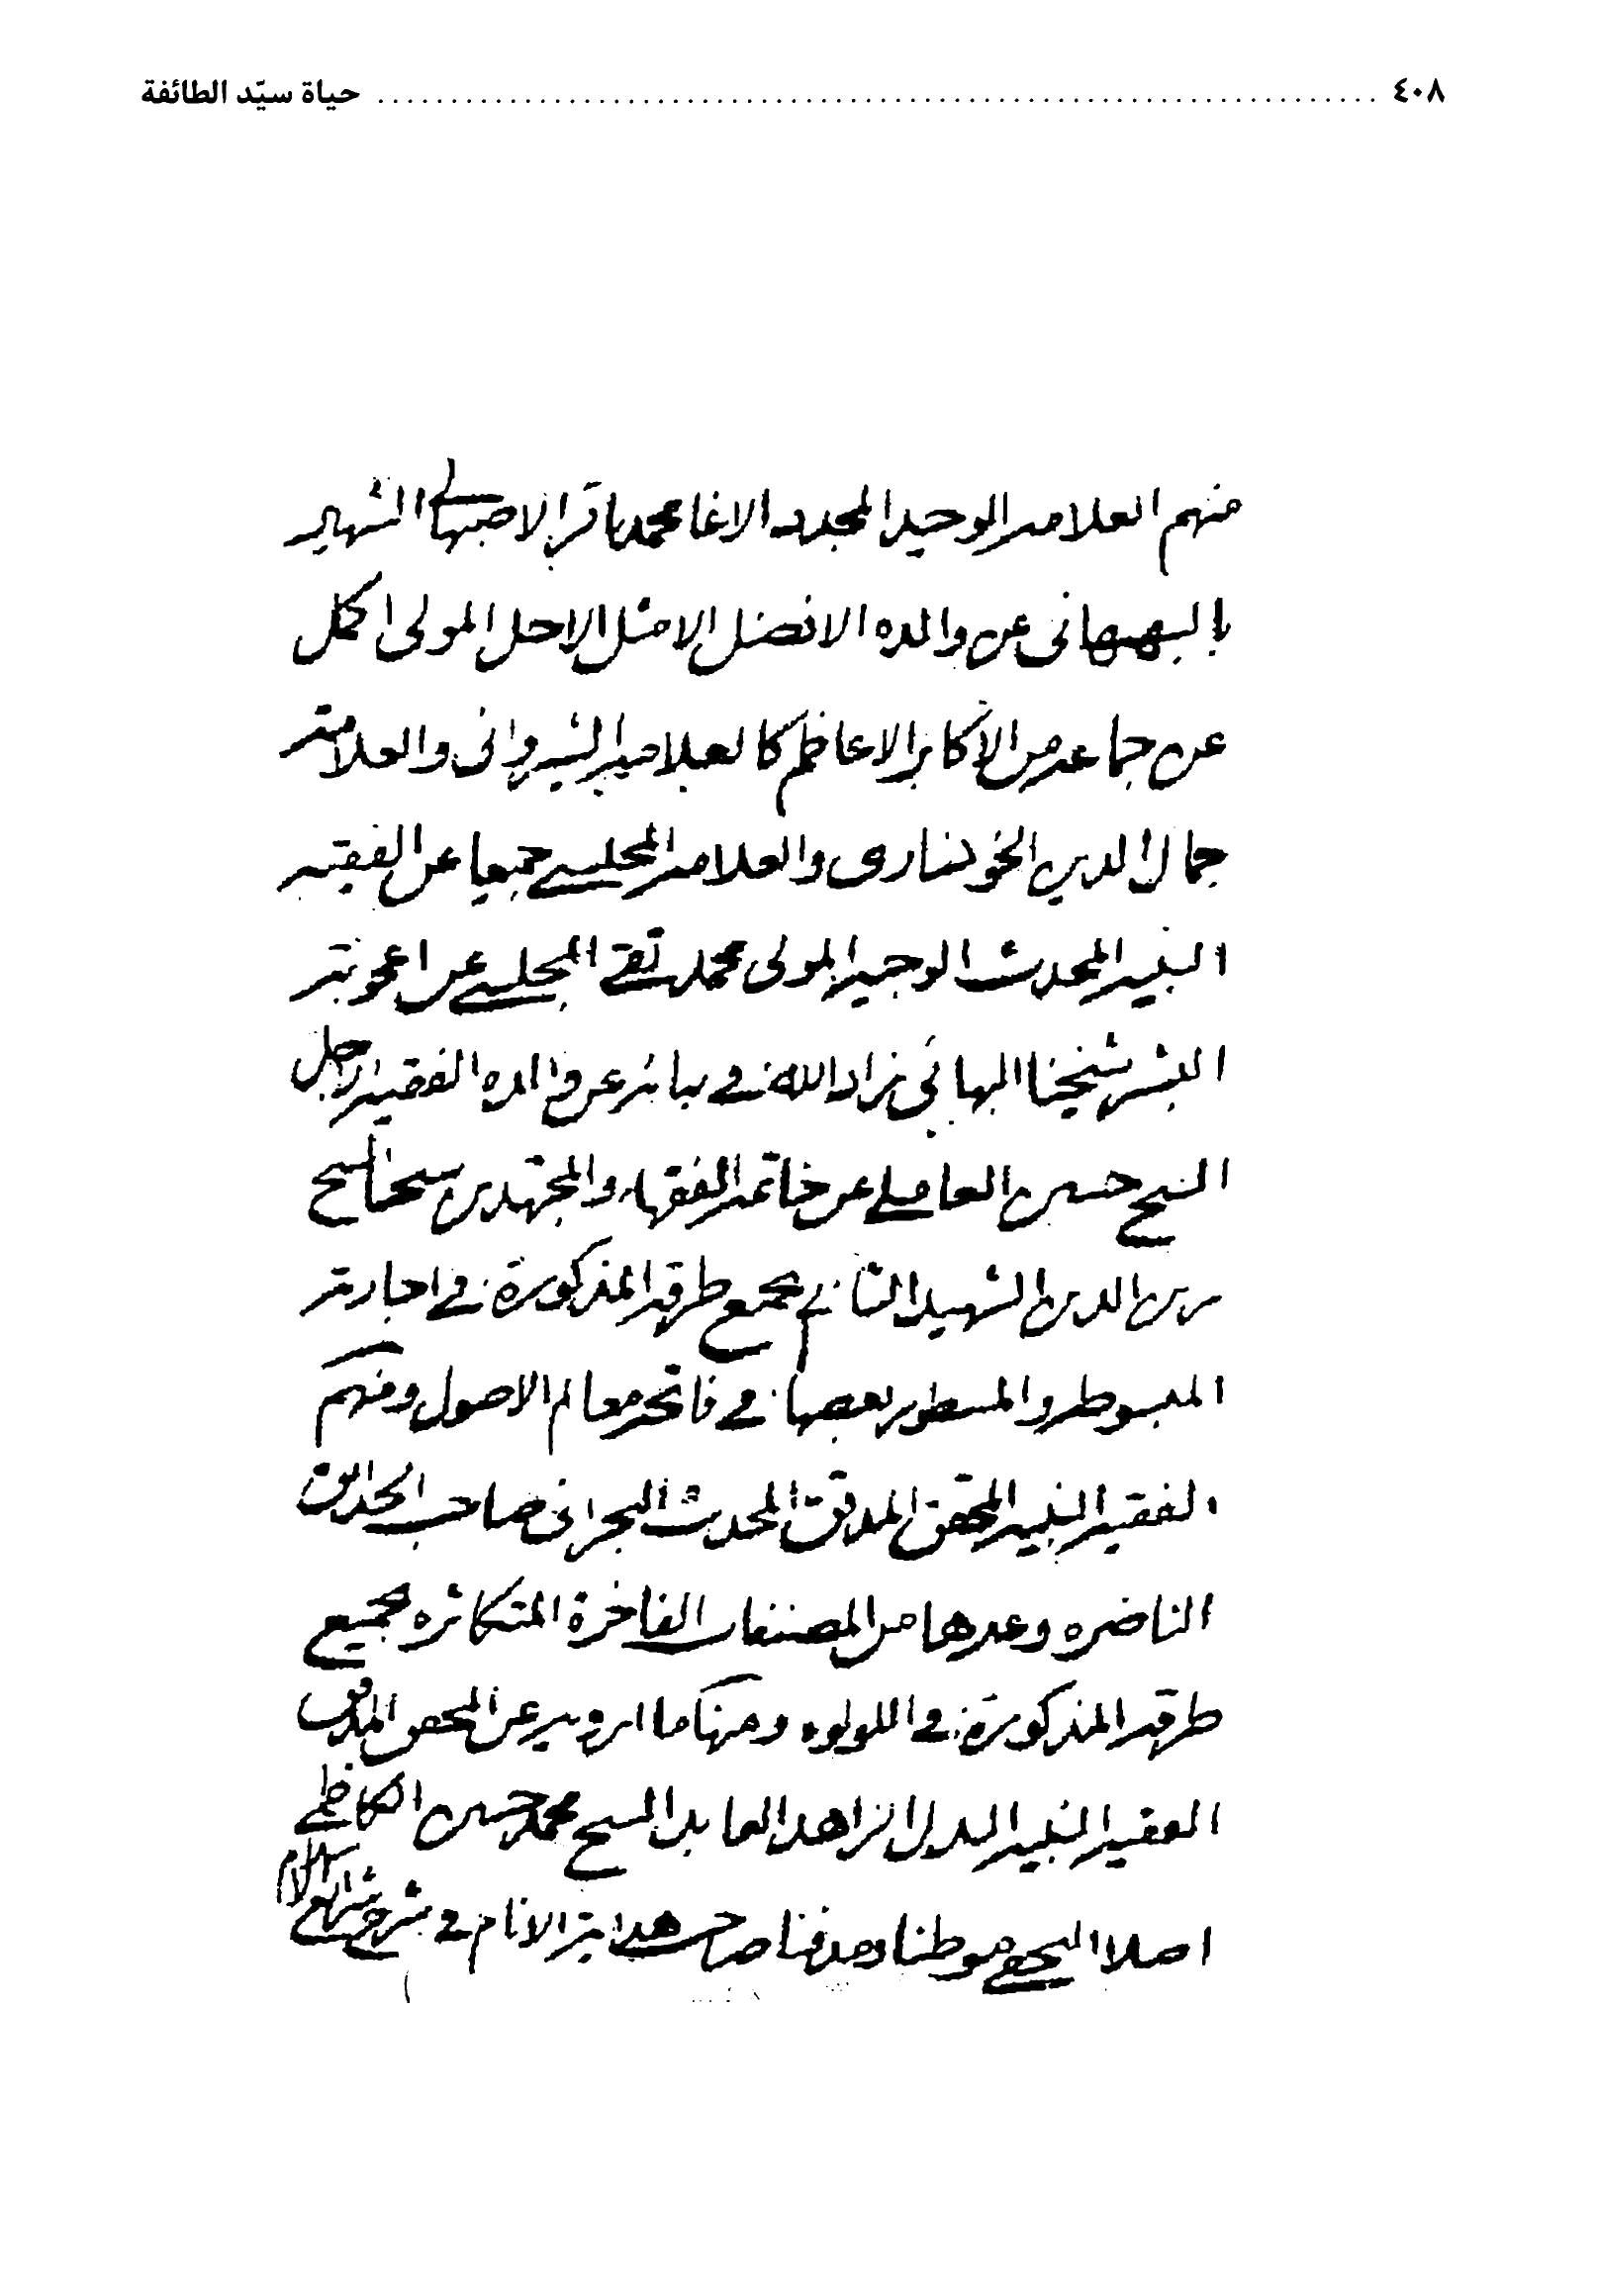 ٤٠٨ حياة سيّد الطائفة
منهم العلامه الوحيد المجدد الاغا محمد باقر الاصبهاني الشهير
بالبهبهانى عن والده الافضل الامثل الاجل المولى اكمل
عن جماعه من الاكابر الاعاظم كالعلامه الشيروانى والعلامه
جمال الدين الخونسارى والعلامه المجلسي جميعا عن الفقيه
النبيه المحدث الوجيه المولى محمد تقي المجلسي عن اعجوبته
البشر شيخنا البهائى زاد الله في بهائه عن والده الفقيه الاجل
الشيخ حسين العاملي عن خاتمه الفقهاء والمجتهدين شيخنا الشيخ
زين الدين الشهيد الثاني بجميع طرقه المذكورة في اجازته
المبسوطه والمسطور بعضها في فاتحه معالم الاصول ومنهم
الفقيه النبيه المحقق المدقق المحدث البحرانى صاحب الحدائق
الناضره وغيرها من المصنفات الفاخرة المتكاثره بجميع
طرقه المذكورة في اللولوه ومنها ما ارويه عن المحقق المدقق
الفقيه النبيه البدل الزاهد العابد الشيخ محمد حسين الكاظمي
اصلا النجفي موطنا ومدفنا صاحب هداية الانام في شرح شرائع الاسلام